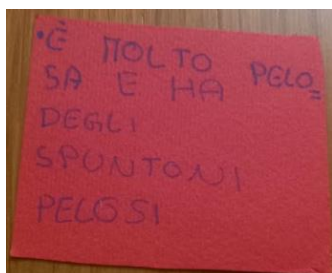 • È MOLTO PELO=
SA E HA
DEGLI
SPUNTONI
PELOSI